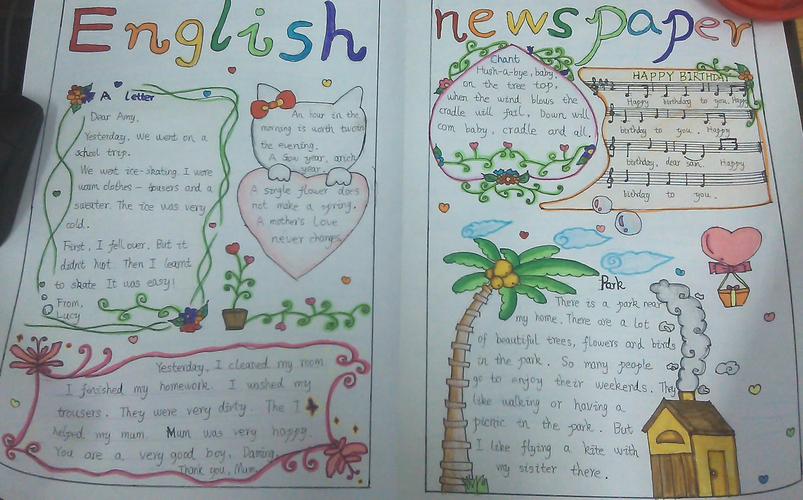 English
newspaper
A letter
Dear Amy,
Yesterday, We went on a
school trip.
We went ice-skating. I wore
warm clothes — trousers and a
sweater. The ice was very
cold.
First, I fell over. But it
didn't hurt. Then I learnt
to skate. It was easy!
From,
Lucy
An hour in the
morning is worth two in
the evening.
A Snow year, a rich
year.
A single flower does
not make a spring.
A mother's Love
never changes.
Yesterday, I cleaned my room.
I finished my homework. I washed my
trousers. They were very dirty. The I
helped my mum. Mum was very happy.
You are a very good boy, Daming.
Thank you, Mum.
Chant
Hush-a-bye, baby,
on the tree top,
when the wind blows the
cradle will fall, Down will
com baby, cradle and all.
HAPPY BIRTHDAY
Happy birthday to you, Happy
birthday to you. Happy
birthday, dear san. Happy
birthday to you.
Park
There is a park near
my home. There are a lot
of beautiful trees, flowers and birds
in the park. So many people
go to enjoy their weekends. They
like walking or having a
picnic in the park. But
I like flying a kite with
my sisiter there.